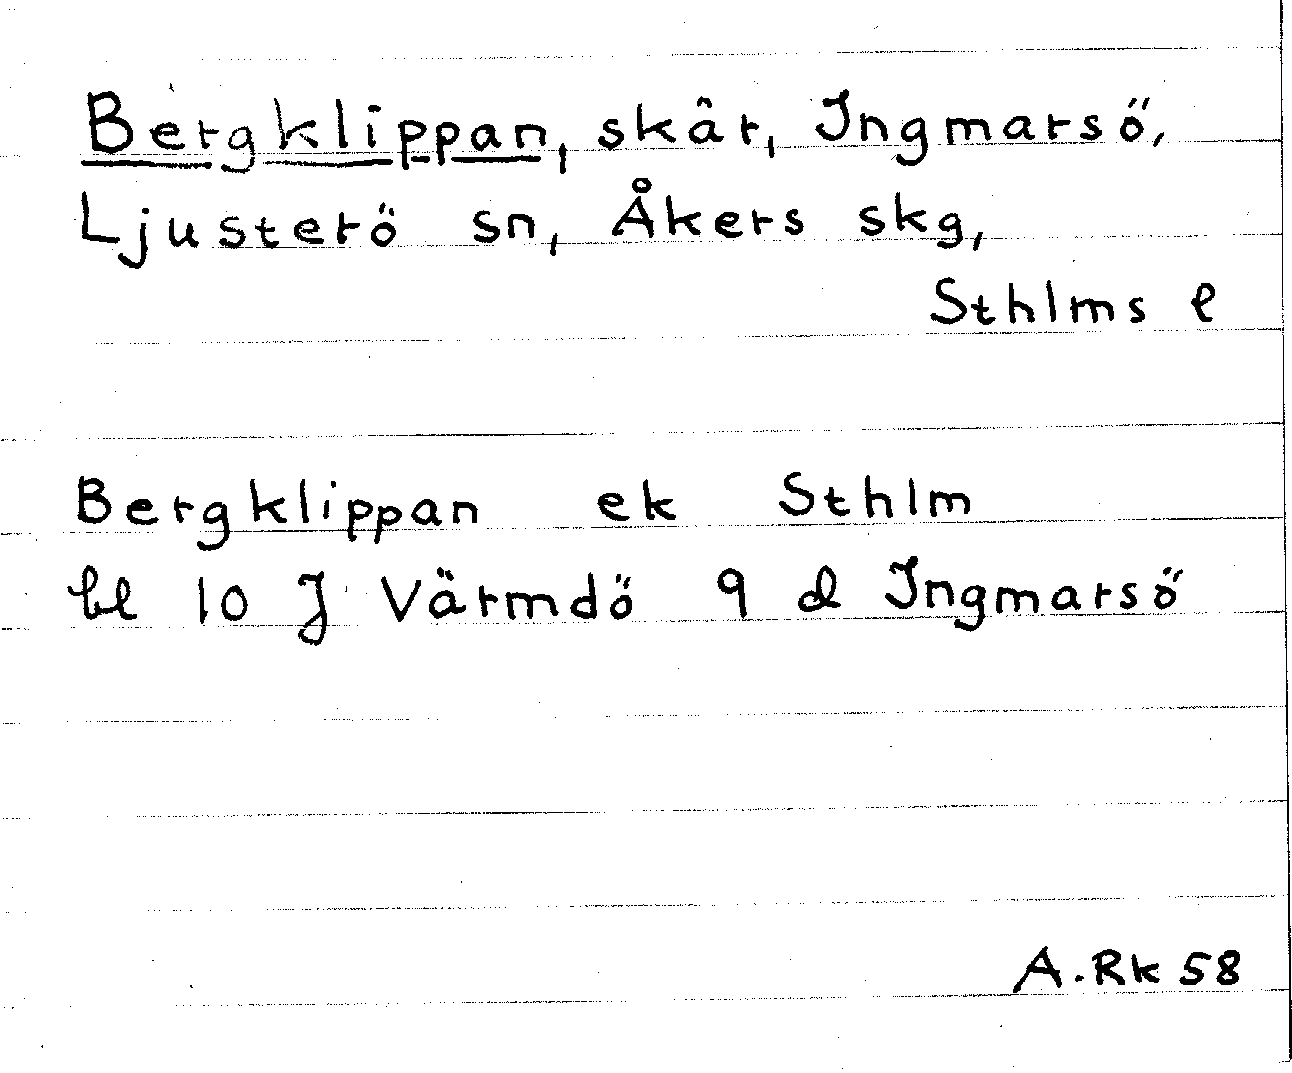 Bergklippan, skär, Ingmarsö,
Ljusterö sn, Åkers skg,
Sthlms l
Bergklippan ek Sthlm
bl 10 J Värmdö 9 d Ingmarsö
A.Rk 58